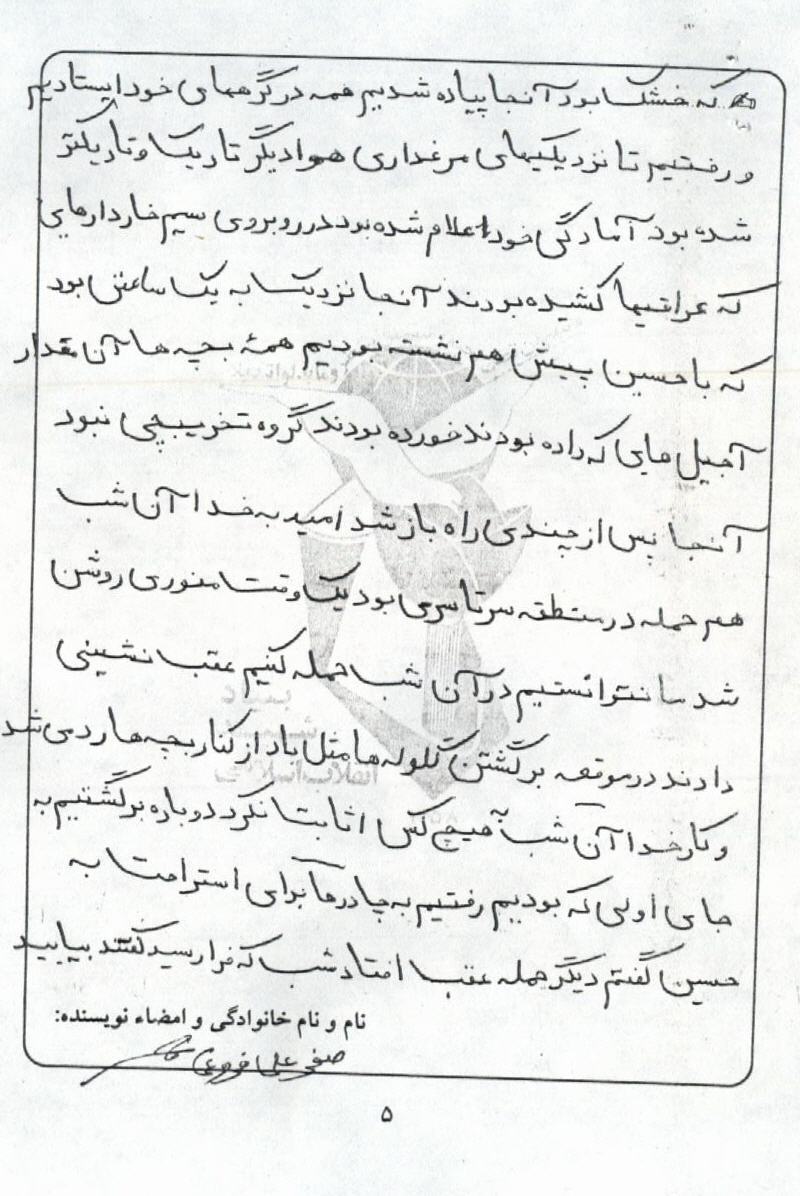 که خشک بود آنجا پیاده شدیم همه در گرههای خود ایستادیم
و رفتیم تا نزدیکیهای مرغداری هوا دیگر تاریک و تاریکتر
شده بود آمادگی خود اعلام شده بود در روبروی سیم خاردارهایی
که عراقیها کشیده بودند آنجا نزدیک به یک ساعتی بود
که با حسین پیش هم نشسته بودیم همۀ بچه ها آن مقدار
آجیل های که داده بودند خورده بودند گروه تخریبچی نبود
آنجا پس از چندی راه باز شد امید به خدا آن شب
هم حمله در منطقه سرتاسری بود یک وقت منوری روشن
شد ما نتوانستیم در آن شب حمله کنیم عقب نشینی
دادند در موقعه برگشتن گلوله ها مثل باد از کنار بچه ها رد می شد
و کار خدا آن شب هیچ کس اثابت نکرد دوباره برگشتیم به
جای اولی که بودیم رفتیم به چادرها برای استراحت به
حسین گفتم دیگر حمله عقب افتاد شب که فرا رسید گفتند بیایید
نام و نام خانوادگی و امضاء نویسنده:
صفر علی
۵
بنیاد
شهید
انقلاب اسلامی